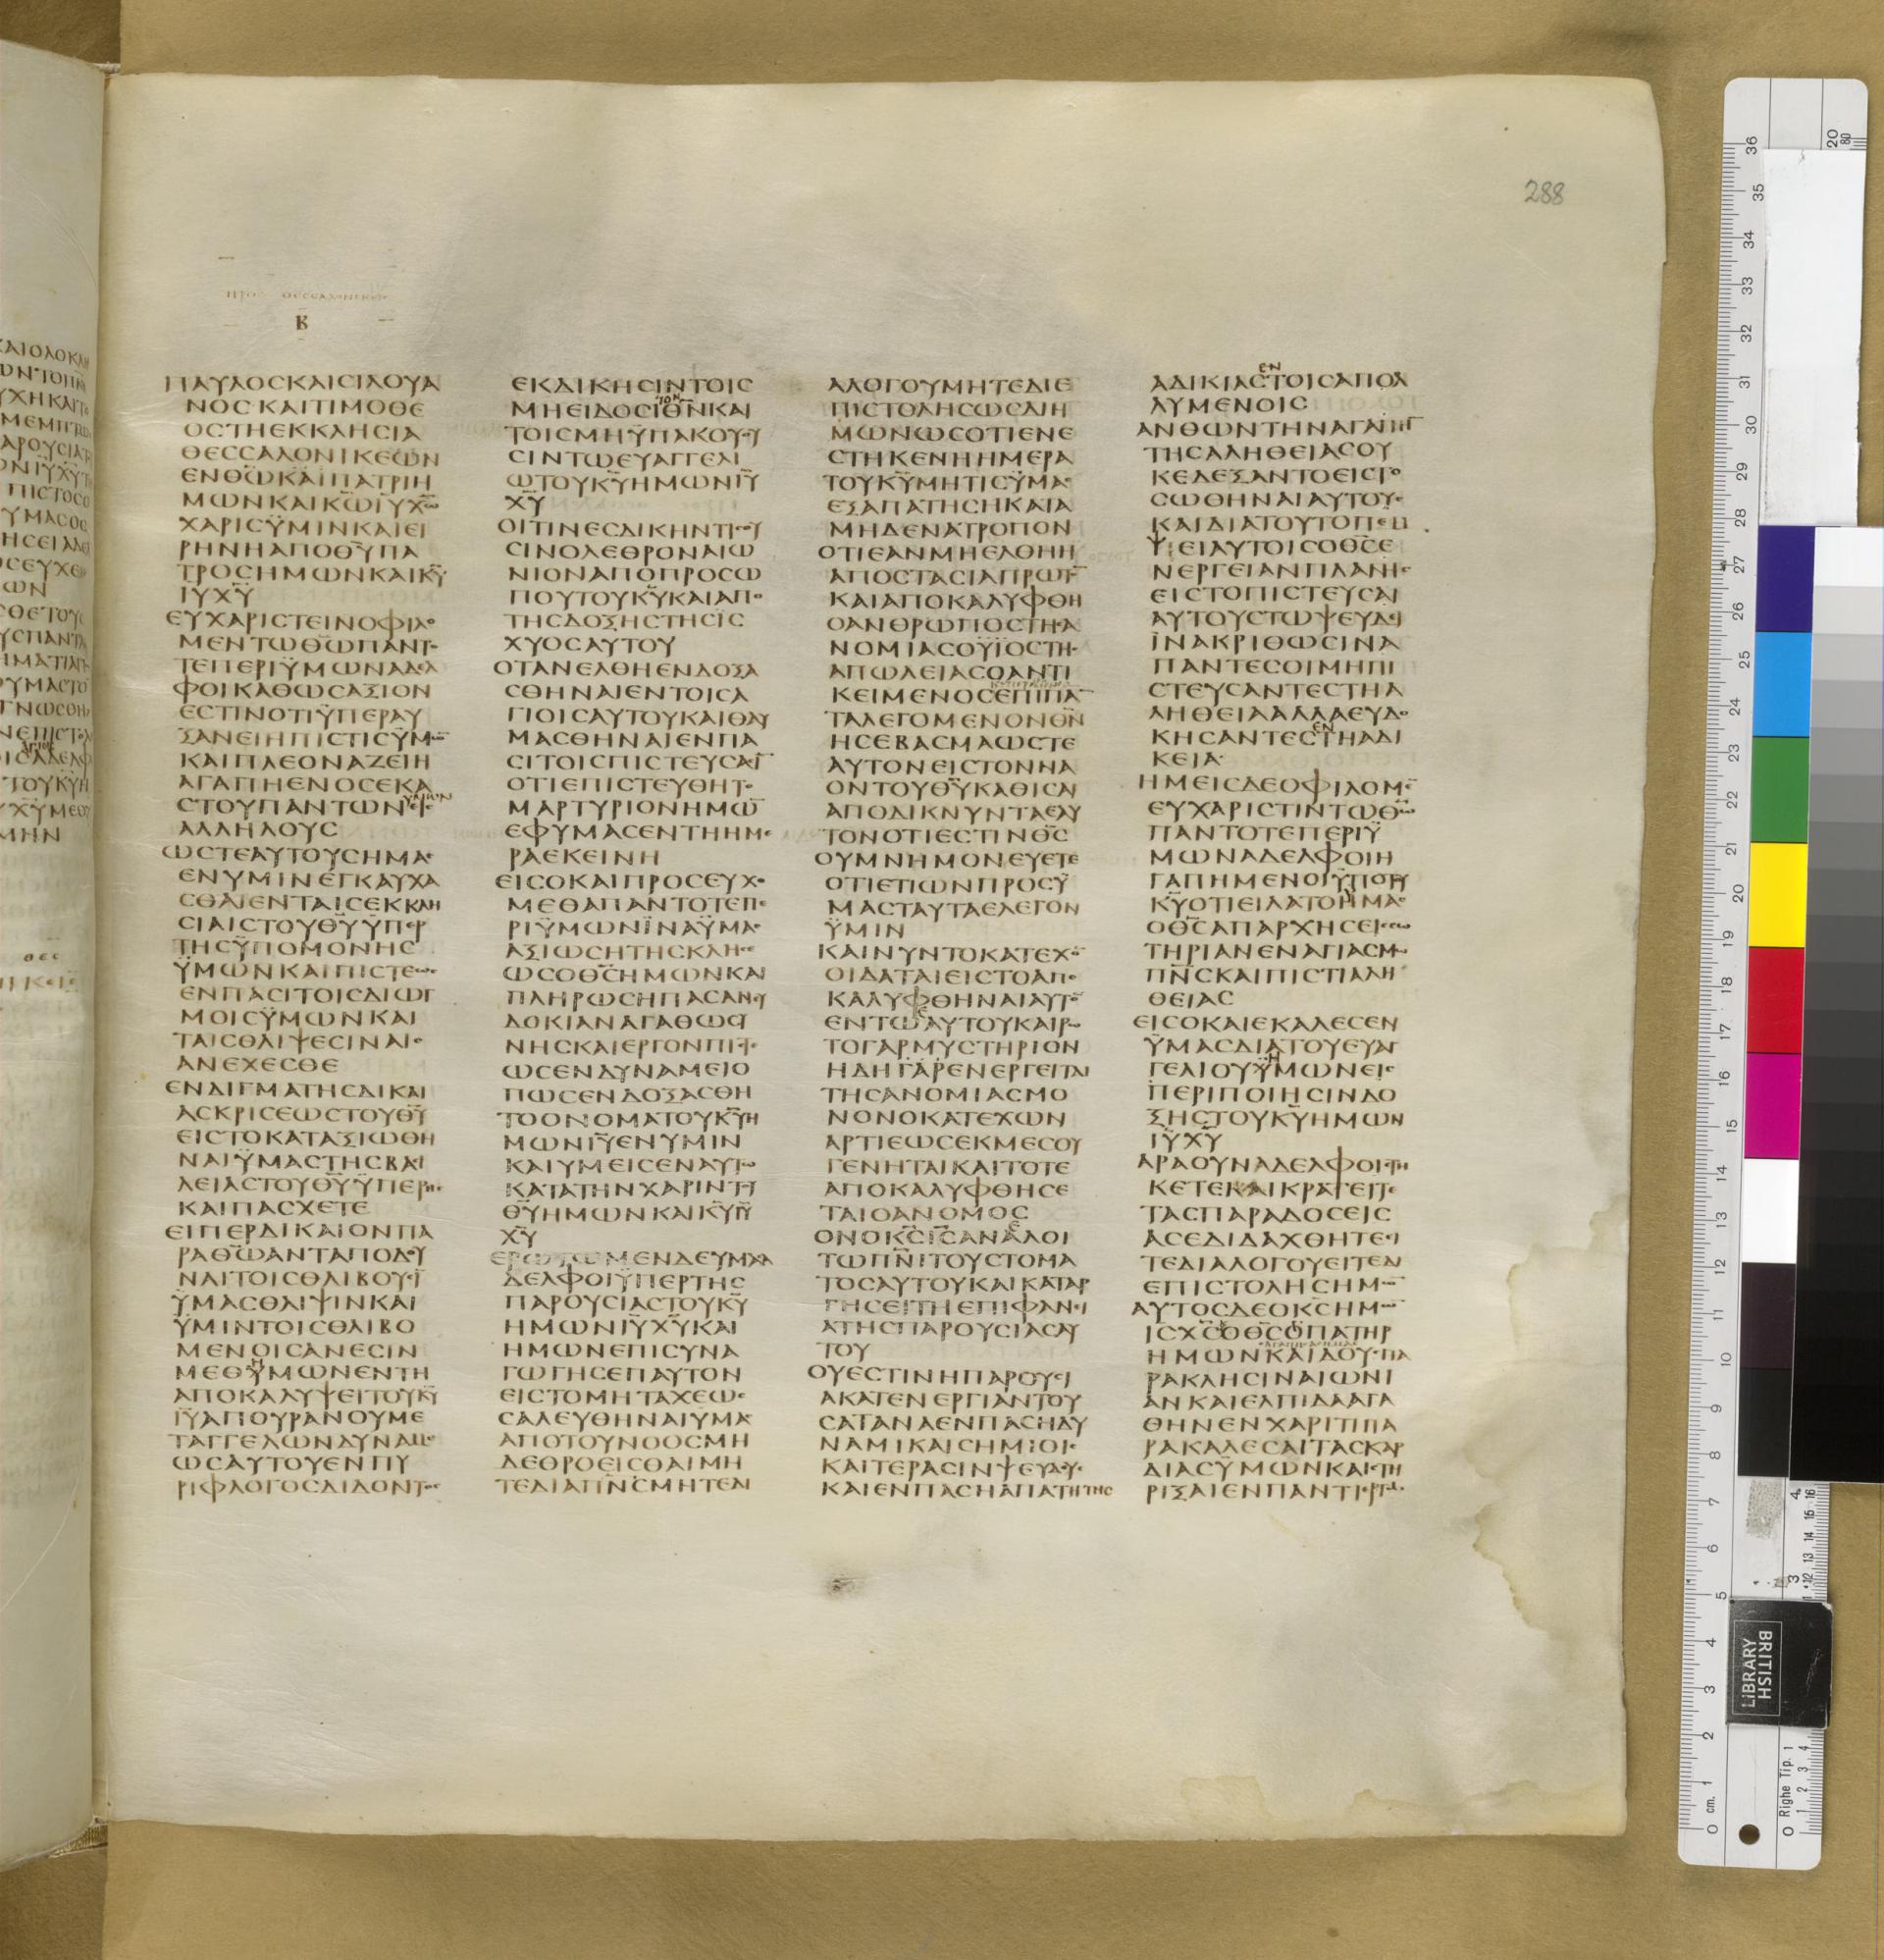 288
ΠΡΟΣ ΘΕϹϹΑΛΟΝΙΚΕΙϹ
Β
ΠΑΥΛΟϹΚΑΙϹΙΛΟΥΑ
ΝΟϹΚΑΙΤΙΜΟΘΕ
ΟϹΤΗΕΚΚΛΗϹΙΑ
ΘΕϹϹΑΛΟΝΙΚΕΩΝ
ΕΝΘΩΚΑΙΠΑΤΡΙΗ
ΜΩΝΚΑΙΚΩΙΥΧΩ
ΧΑΡΙϹΫΜΙΝΚΑΙΕΙ
ΡΗΝΗΑΠΟΘΥΠΑ
ΤΡΟϹΗΜΩΝΚΑΙΚΥ
ΙΥΧΥ
ΕΥΧΑΡΙϹΤΕΙΝΟΦΙΛΟ
ΜΕΝΤΩΘΩΠΑΝΤΟ
ΤΕΠΕΡΙΫΜΩΝΑΔΕΛ
ΦΟΙΚΑΘΩϹΑΞΙΟΝ
ΕϹΤΙΝΟΤΙΫΠΕΡΑΥ
ΞΑΝΕΙΗΠΙϹΤΙϹΫΜΩ
ΚΑΙΠΛΕΟΝΑΖΕΙΗ
ΑΓΑΠΗΕΝΟϹΕΚΑ
ϹΤΟΥΠΑΝΤΩΝΕΙϹ
ΑΛΛΗΛΟΥϹ
ΩϹΤΕΑΥΤΟΥϹΗΜΑϹ
ΕΝΥΜΙΝΕΓΚΑΥΧΑ
ϹΘΑΙΕΝΤΑΙϹΕΚΚΛΗ
ϹΙΑΙϹΤΟΥΘΥΫΠΕΡ
ΤΗϹΫΠΟΜΟΝΗϹ
ΫΜΩΝΚΑΙΠΙϹΤΕΩϹ
ΕΝΠΑϹΙΤΟΙϹΔΙΩΓ
ΜΟΙϹΫΜΩΝΚΑΙ
ΤΑΙϹΘΛΙΨΕϹΙΝΑΙϹ
ΑΝΕΧΕϹΘΕ
ΕΝΔΙΓΜΑΤΗϹΔΙΚΑΙ
ΑϹΚΡΙϹΕΩϹΤΟΥΘΥ
ΕΙϹΤΟΚΑΤΑΞΙΩΘΗ
ΝΑΙΫΜΑϹΤΗϹΒΑϹΙ
ΛΕΙΑϹΤΟΥΘΥΫΠΕΡΗϹ
ΚΑΙΠΑϹΧΕΤΕ
ΕΙΠΕΡΔΙΚΑΙΟΝΠΑ
ΡΑΘΩΑΝΤΑΠΟΔΟΥ
ΝΑΙΤΟΙϹΘΛΙΒΟΥϹΙ
ΫΜΑϹΘΛΙΨΙΝΚΑΙ
ΫΜΙΝΤΟΙϹΘΛΙΒΟ
ΜΕΝΟΙϹΑΝΕϹΙΝ
ΜΕΘΫΜΩΝΕΝΤΗ
ΑΠΟΚΑΛΥΨΕΙΤΟΥΚΥ
ΙΥΑΠΟΥΡΑΝΟΥΜΕ
ΤΑΓΓΕΛΩΝΔΥΝΑΜΕ
ΩϹΑΥΤΟΥΕΝΠΥ
ΡΙΦΛΟΓΟϹΔΙΔΟΝΤΟϹ
ΕΚΔΙΚΗϹΙΝΤΟΙϹ
ΜΗΕΙΔΟϹΙΘΝΚΑΙ
ΤΟΙϹΜΗΫΠΑΚΟΥΟΥ
ϹΙΝΤΩΕΥΑΓΓΕΛΙ
ΩΤΟΥΚΥΗΜΩΝΙΥ
ΧΥ
ΟΙΤΙΝΕϹΔΙΚΗΝΤΙϹΟΥ
ϹΙΝΟΛΕΘΡΟΝΑΙΩ
ΝΙΟΝΑΠΟΠΡΟϹΩ
ΠΟΥΤΟΥΚΥΚΑΙΑΠΟ
ΤΗϹΔΟΞΗϹΤΗϹΙϹ
ΧΥΟϹΑΥΤΟΥ
ΟΤΑΝΕΛΘΗΕΝΔΟΞΑ
ϹΘΗΝΑΙΕΝΤΟΙϹΑ
ΓΙΟΙϹΑΥΤΟΥΚΑΙΘΑΥ
ΜΑϹΘΗΝΑΙΕΝΠΑ
ϹΙΤΟΙϹΠΙϹΤΕΥϹΑϹΙ
ΟΤΙΕΠΙϹΤΕΥΘΗΤΟ
ΜΑΡΤΥΡΙΟΝΗΜΩ
ΕΦΥΜΑϹΕΝΤΗΗΜΕ
ΡΑΕΚΕΙΝΗ
ΕΙϹΟΚΑΙΠΡΟϹΕΥΧΟ
ΜΕΘΑΠΑΝΤΟΤΕΠΕ
ΡΙΫΜΩΝΪΝΑΫΜΑϹ
ΑΞΙΩϹΗΤΗϹΚΛΗϹΕ
ΩϹΟΘϹΗΜΩΝΚΑΙ
ΠΛΗΡΩϹΗΠΑϹΑΝΕΥ
ΔΟΚΙΑΝΑΓΑΘΩϹΥ
ΝΗϹΚΑΙΕΡΓΟΝΠΙϹΤΕ
ΩϹΕΝΔΥΝΑΜΕΙΟ
ΠΩϹΕΝΔΟΞΑϹΘΗ
ΤΟΟΝΟΜΑΤΟΥΚΥΗ
ΜΩΝΙΥΕΝΥΜΙΝ
ΚΑΙΥΜΕΙϹΕΝΑΥΤΩ
ΚΑΤΑΤΗΝΧΑΡΙΝΤΟΥ
ΘΥΗΜΩΝΚΑΙΚΥΙΥ
ΧΥ
ΕΡΩΤΩΜΕΝΔΕΥΜΑϹΑ
ΔΕΛΦΟΙΫΠΕΡΤΗϹ
ΠΑΡΟΥϹΙΑϹΤΟΥΚΥ
ΗΜΩΝΙΥΧΥΚΑΙ
ΗΜΩΝΕΠΙϹΥΝΑ
ΓΩΓΗϹΕΠΑΥΤΟΝ
ΕΙϹΤΟΜΗΤΑΧΕΩϹ
ϹΑΛΕΥΘΗΝΑΙΥΜΑϹ
ΑΠΟΤΟΥΝΟΟϹΜΗ
ΔΕΘΡΟΕΙϹΘΑΙΜΗ
ΤΕΔΙΑΠΝϹΜΗΤΕΔΙ
ΑΛΟΓΟΥΜΗΤΕΔΙΕ
ΠΙϹΤΟΛΗϹΩϹΔΙΗ
ΜΩΝΩϹΟΤΙΕΝΕ
ϹΤΗΚΕΝΗΗΜΕΡΑ
ΤΟΥΚΥΜΗΤΙϹΫΜΑϹ
ΕΞΑΠΑΤΗϹΗΚΑΤΑ
ΜΗΔΕΝΑΤΡΟΠΟΝ
ΟΤΙΕΑΝΜΗΕΛΘΗΗ
ΑΠΟϹΤΑϹΙΑΠΡΩΤΟ
ΚΑΙΑΠΟΚΑΛΥΦΘΗ
ΟΑΝΘΡΩΠΟϹΤΗϹΑ
ΝΟΜΙΑϹΟΫΙΟϹΤΗϹ
ΑΠΩΛΕΙΑϹΟΑΝΤΙ
ΚΕΙΜΕΝΟϹΕΠΙΠΑ
ΤΑΛΕΓΟΜΕΝΟΝΘΝ
ΗϹΕΒΑϹΜΑΩϹΤΕ
ΑΥΤΟΝΕΙϹΤΟΝΝΑ
ΟΝΤΟΥΘΥΚΑΘΙϹΑΙ
ΑΠΟΔΙΚΝΥΝΤΑΕΑΥ
ΤΟΝΟΤΙΕϹΤΙΝΘϹ
ΟΥΜΝΗΜΟΝΕΥΕΤΕ
ΟΤΙΕΤΙΩΝΠΡΟϹΫ
ΜΑϹΤΑΥΤΑΕΛΕΓΟΝ
ΫΜΙΝ
ΚΑΙΝΥΝΤΟΚΑΤΕΧΟ
ΟΙΔΑΤΑΙΕΙϹΤΟΑΠΟ
ΚΑΛΥΦΘΗΝΑΙΑΥΤΟ
ΕΝΤΩΑΥΤΟΥΚΑΙΡΩ
ΤΟΓΑΡΜΥϹΤΗΡΙΟΝ
ΗΔΗΓΑΡΕΝΕΡΓΕΙΤΑΙ
ΤΗϹΑΝΟΜΙΑϹΜΟ
ΝΟΝΟΚΑΤΕΧΩΝ
ΑΡΤΙΕΩϹΕΚΜΕϹΟΥ
ΓΕΝΗΤΑΙΚΑΙΤΟΤΕ
ΑΠΟΚΑΛΥΦΘΗϹΕ
ΤΑΙΟΑΝΟΜΟϹ
ΟΝΟΚϹΙϹΑΝΑΛΟΙ
ΤΩΠΝΙΤΟΥϹΤΟΜΑ
ΤΟϹΑΥΤΟΥΚΑΙΚΑΤΑΡ
ΓΗϹΕΙΤΗΕΠΙΦΑΝΕΙ
ΑΤΗϹΠΑΡΟΥϹΙΑϹΑΥ
ΤΟΥ
ΟΥΕϹΤΙΝΗΠΑΡΟΥϹΙ
ΑΚΑΤΕΝΕΡΓΙΑΝΤΟΥ
ϹΑΤΑΝΑΕΝΠΑϹΗΔΥ
ΝΑΜΙΚΑΙϹΗΜΙΟΙϹ
ΚΑΙΤΕΡΑϹΙΝΨΕΥΔΟΥϹ
ΚΑΙΕΝΠΑϹΗΑΠΑΤΗΤΗϹ
ΑΔΙΚΙΑϹΤΟΙϹΑΠΟΛ
ΛΥΜΕΝΟΙϹ
ΑΝΘΩΝΤΗΝΑΓΑΠΗ
ΤΗϹΑΛΗΘΕΙΑϹΟΥ
ΚΕΔΕΞΑΝΤΟΕΙϹΤΟ
ϹΩΘΗΝΑΙΑΥΤΟΥϹ
ΚΑΙΔΙΑΤΟΥΤΟΠΕΜ
ΨΕΙΑΥΤΟΙϹΟΘϹΕ
ΝΕΡΓΕΙΑΝΠΛΑΝΗϹ
ΕΙϹΤΟΠΙϹΤΕΥϹΑΙ
ΑΥΤΟΥϹΤΩΨΕΥΔΕΙ
ΪΝΑΚΡΙΘΩϹΙΝΑ
ΠΑΝΤΕϹΟΙΜΗΠΙ
ϹΤΕΥϹΑΝΤΕϹΤΗΑ
ΛΗΘΕΙΑΑΛΛΑΕΥΔΟ
ΚΗϹΑΝΤΕϹΤΗΑΔΙ
ΚΕΙΑ
ΗΜΕΙϹΔΕΟΦΙΛΟΜΕ
ΕΥΧΑΡΙϹΤΙΝΤΩΘΩ
ΠΑΝΤΟΤΕΠΕΡΙΫ
ΜΩΝΑΔΕΛΦΟΙΗ
ΓΑΠΗΜΕΝΟΙΫΠΟΤΟΥ
ΚΥΟΤΙΕΙΛΑΤΟΗΜΑϹ
ΟΘϹΑΠΑΡΧΗϹΕΙϹϹΩ
ΤΗΡΙΑΝΕΝΑΓΙΑϹΜΩ
ΠΝϹΚΑΙΠΙϹΤΙΑΛΗ
ΘΕΙΑϹ
ΕΙϹΟΚΑΙΕΚΑΛΕϹΕΝ
ΫΜΑϹΔΙΑΤΟΥΕΥΑΓ
ΓΕΛΙΟΥΫΜΩΝΕΙϹ
ΠΕΡΙΠΟΙΗϹΙΝΔΟ
ΞΗϹΤΟΥΚΥΗΜΩΝ
ΙΥΧΥ
ΑΡΑΟΥΝΑΔΕΛΦΟΙϹΤΗ
ΚΕΤΕΚΑΙΚΡΑΤΕΙΤΕ
ΤΑϹΠΑΡΑΔΟϹΕΙϹ
ΑϹΕΔΙΔΑΧΘΗΤΕΕΙ
ΤΕΔΙΑΛΟΓΟΥΕΙΤΕΔΙ
ΕΠΙϹΤΟΛΗϹΗΜΩ
ΑΥΤΟϹΔΕΟΚϹΗΜΩ
ΙϹΧϹΟΘϹΟΠΑΤΗΡ
ΗΜΩΝΚΑΙΔΟΥϹΠΑ
ΡΑΚΛΗϹΙΝΑΙΩΝΙ
ΑΝΚΑΙΕΛΠΙΔΑΑΓΑ
ΘΗΝΕΝΧΑΡΙΤΙΠΑ
ΡΑΚΑΛΕϹΑΙΤΑϹΚΑΡ
ΔΙΑϹΫΜΩΝΚΑΙϹΤΗ
ΡΙΞΑΙΕΝΠΑΝΤΙΕΡΓΩ
BRITISH
LIBRARY